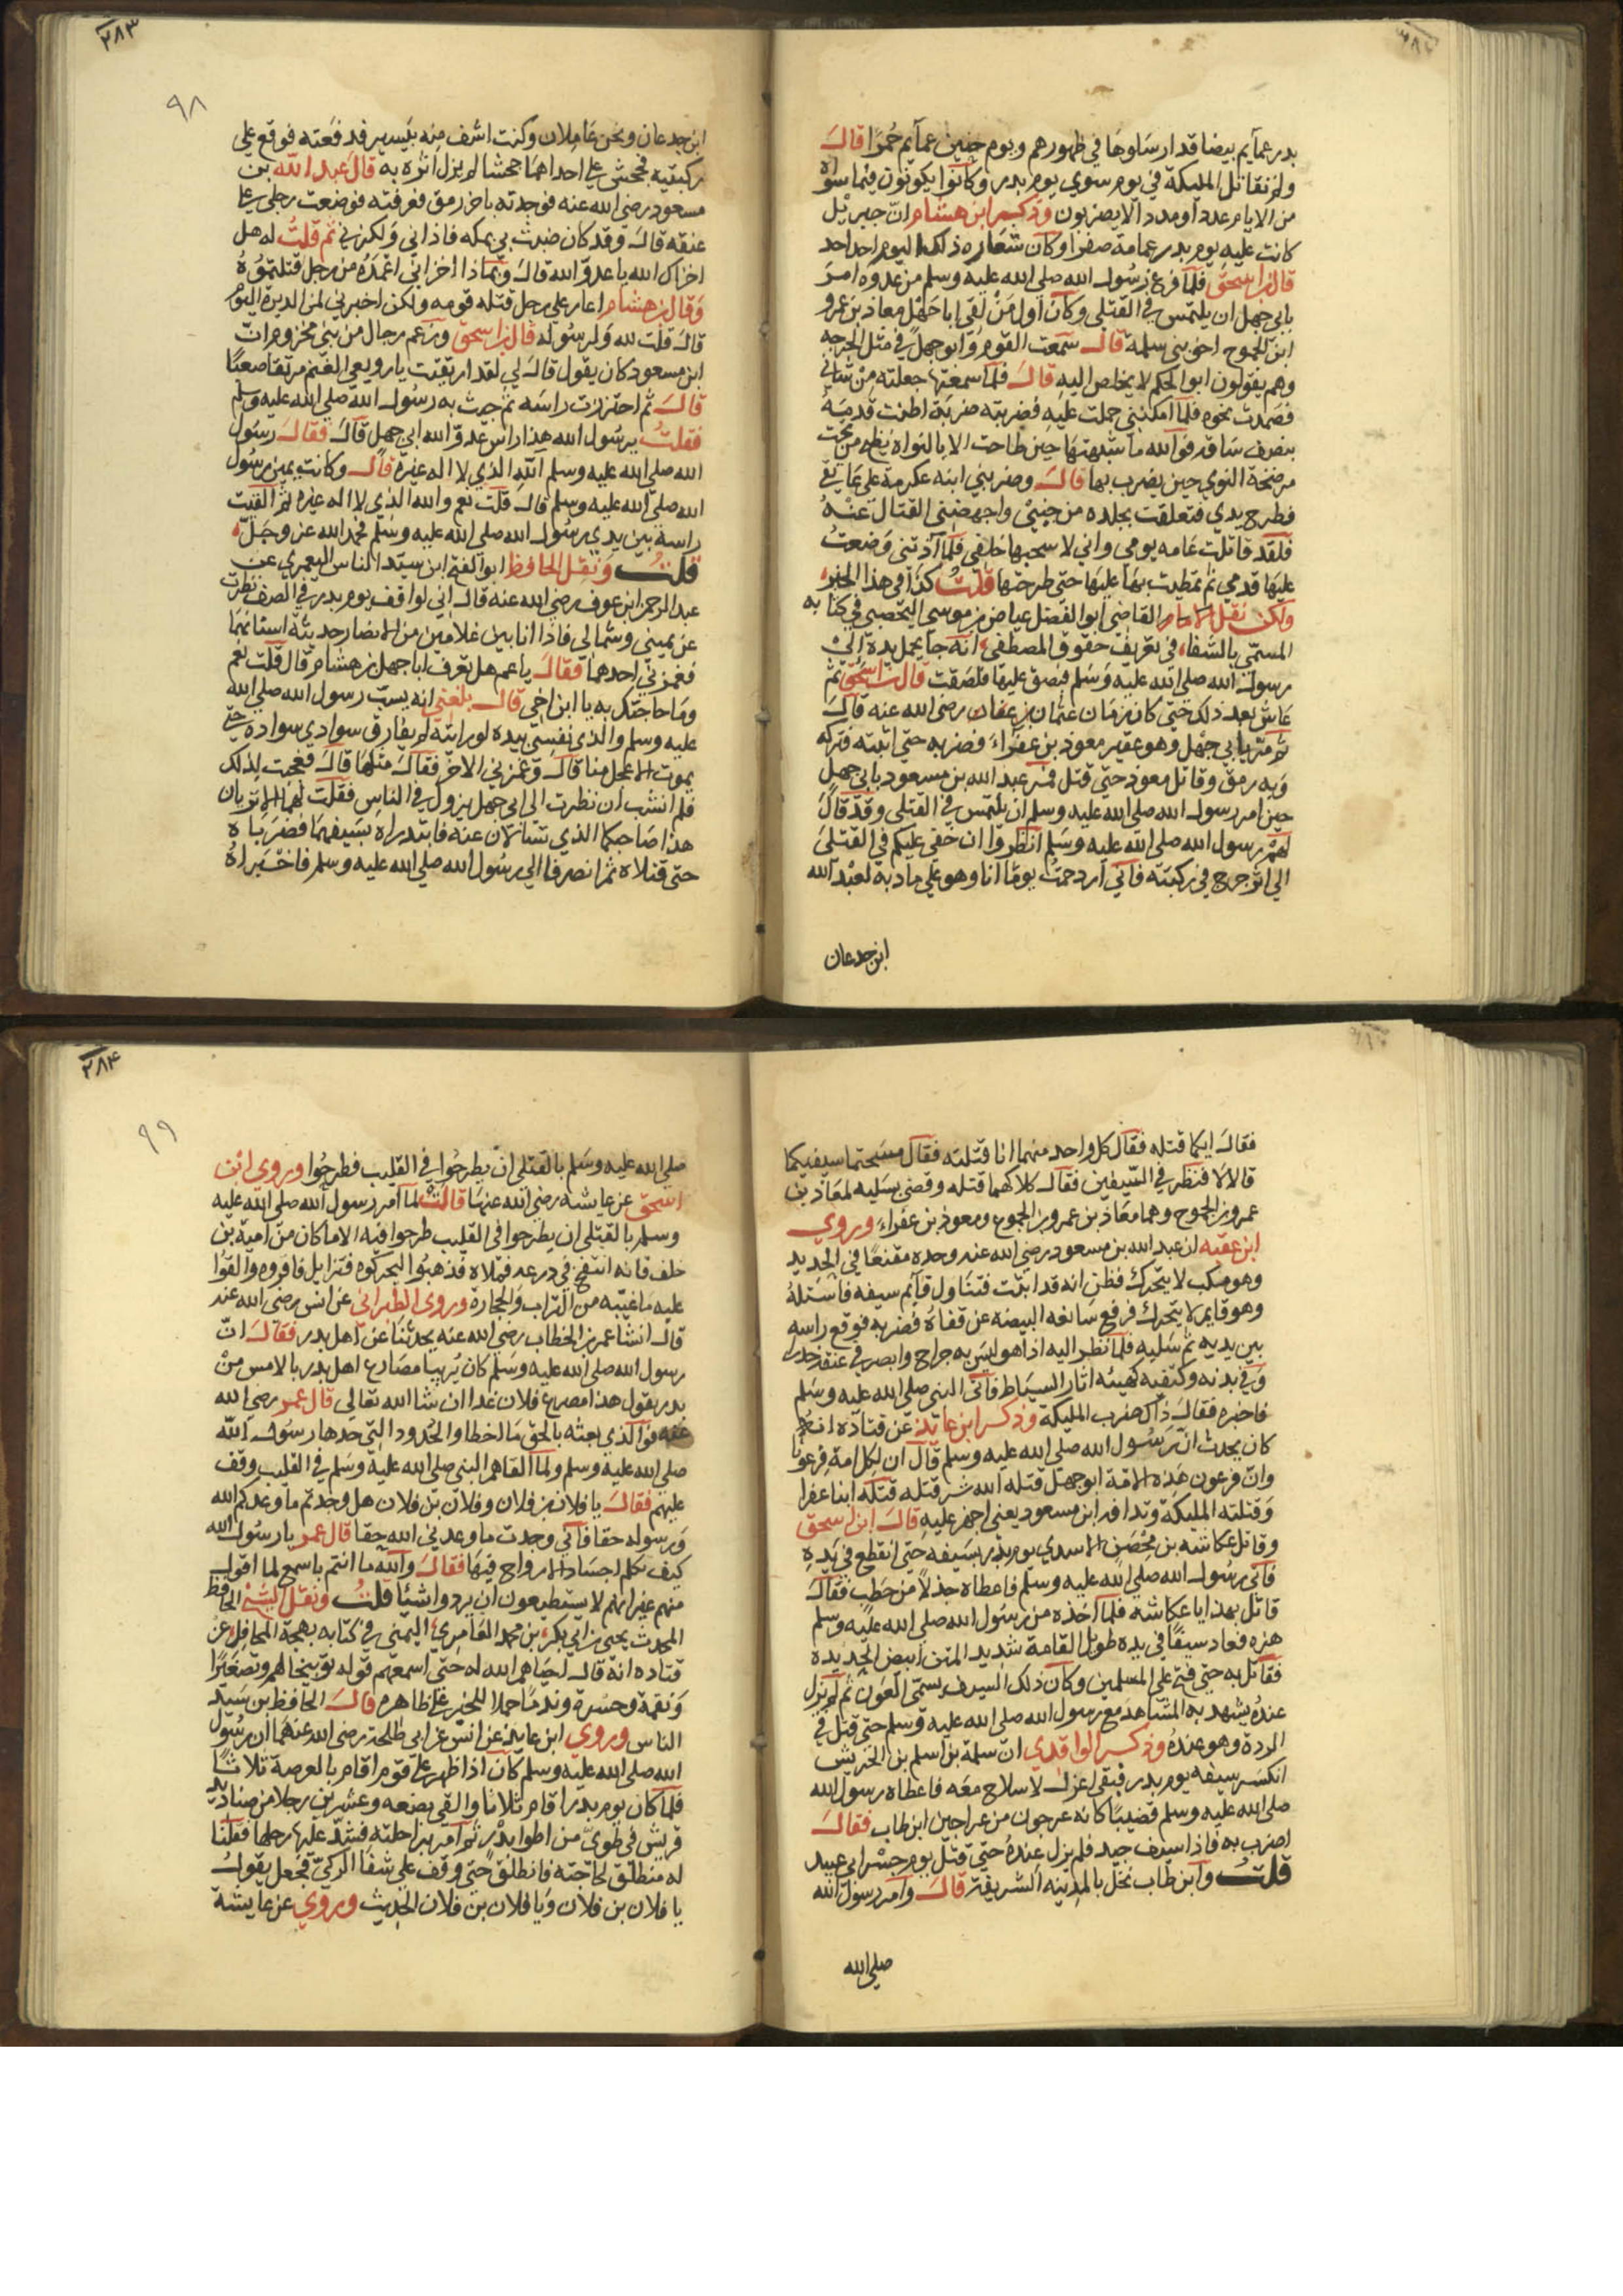 بدر عمآيم بيضا قد ارسَلوهَا في ظهورهم ويوم حنين عمآيم حُمرًا قالـَ
ولم تقاتل المليكة في يوم سوي يوم بدر وكانوا يكونون فيما سواه
من الايام عددا ومددا لا يضربون وذكر ابن هشام انّ جبريل
كانت عليه يوم بدر عمامة صفرا وكان شعاره ذلك اليوم احد احد
قال ابن اسحق فلمآ فرغ رسُولـ الله صلى الله عليه وسلم من عدوه امرَ
بابي جهل ان يلتمس في القتلي وكان اول مَنْ لقي ابا جَهْل معاذ بن عمرو
ابن الجموح اخو بني سلمة قالـَ سمعت القومَ وَابو جهل في مثل الحرجه
وهم يقولون ابو الحكم لا يخلص اليه قالـَ فلما سمعتها جعلته من شاني
فصَمدت نحوه فلمآ امكنني حملت عليه فضربته ضربَة اطنت قدمَهُ
بنصف سَاقه فوالله ما شبهتهَا حين طاحت الا بالنواه تطيح من تحت
مرضخة النوي حين يضرب بها قالـَ وضربني ابنه عكرمة على عَاتقي
فطرح يدي فتعلقت بجلده من جنبيْ واجهضني القتال عنهُ
فلقد قاتلت عَامه يومي واني لا سحبها خلفي فلمآ آذتني وضعتُ
عليهَا قدمي ثم تمطيت بهَا عليهَا حتى طرحتها قلتُ كذا في هذا الخبر
ولكن نقل الامام القاضي ابو الفضل عياض بن موسي اليحصبي في كتابه
المسمّي بالشفاء في تعريف حقوق المصطفى انه جا يحمل يده الي
رسولـ الله صلى الله عليه وَسَلم فبصق عليهَا فلصَقت قال ابن اسحق ثم
عَاش بعد ذلك حتى كان زمَان عثمان بن عفان رضي الله عنه قالـَ
ثم مَرّ بابي جهْل وهو عقير معوذ بن عفرَاءَ فضربه حتى اثبته فتركه
وَبه رمق وقاتل معوذ حتى قتل فمَر عبد الله بن مسعود بابي جهل
حين امر رسولـ الله صلى الله عليه وسلم ان يلتمس في القتلى وقد قالَ
لهمْ رسول الله صلى الله عليه وسَلم انظروا ان خفي عليكم في القتلى
الي اثر جرح في ركبته فاني ازدحمتُ يومًا انا وهو على مادبة لعبْد الله
ابن جدعان
٢٨٣
٩٨
ابن جدعان ونحن غَلامان وكنت اشف منه بيَسير فدفعته فوقع علي
ركبتيه فجحش علي احداهمَا جحشا لم يزل اثره به قالَ عبد الله بن
مسعود رضي الله عنه فوجدته باخر رمق فعرفته فوضعت رجلي علي
عنقه قالـَ وقد كان ضبث بي بمكه فاذاني وَلكزني ثم قلتُ له هل
اخزاك الله يا عدوّ الله قالـَ وَبماذا اخزاني اعْمَدُ من رجل قتلتمُوهُ
وَقال بن هشام اعار علي رجل قتله قومه ولكن اخبرني لمن الدبرة اليوم
قالـَ قلت لله وَلرسُوله قال ابن اسحق وزعم رجال من بني مخزوم انّ
ابن مسعود كان يقول قالـَ لي لقد ارتقيت يا رويعي الغنم مرتقا صعبًا
قالـَ ثم احتززت راسَه ثم جيت به رسُولـ الله صلى الله عليه وسلم
فقلتُ يرسُول الله هذا راس عدوّ الله ابي جهل قالـَ فقالـَ رسُول
الله صلى الله عليه وسلم اللهِ الذي لا اله غيرهُ قالـَ وكانت يمين رسُول
الله صلى الله عليه وسلم قالـَ قلت نعم والله الذي لا اله غيره ثم القيت
راسه بين يدي رسُولـ الله صلى الله عليه وسَلم فحمد الله عز وجَلّ
قلتُ وَنقل الحافظ ابو الفتح ابن سيّد الناس اليعمري عن
عبد الرحمن ابن عوف رضي الله عنه قالـ اني لواقف يوم بدر في الصف نظرت
عن يميني وشمالي فاذا انا بين غلامين من الانصار حديثة اسنانهمَا
فغمزني احدهما فقالـَ يا عم هل تعرف ابا جهل بن هشام قال قلت نعم
ومَا حاجتك به يا ابن اخي قالـَ بلغني انه يسبّ رسول الله صلى الله
عليه وسلم والذي نفسِي بيده لو رايته لم يفارق سوادي سواده حتى
يموت الاعجل منا قالـَ وغمزني الاخر فقالـَ مثلها قالـَ فعجبت لذلك
فلم انشب ان نظرت الى ابي جهل يزول في الناس فقلت لهما الا تريان
هذا صَاحبكما الذي تسَالان عنه فابتدراه بسَيفهمَا فضرَباه
حتى قتلاه ثم انصرفا الي رسُول الله صلي الله عليه وسلم فاخبرَاهُ
فقالـَ ايكما قتله فقال كل واحد منهما انا قتلته فقال مسَحتما سيفيكما
قالا لا فنظر في السّيفين فقالـ كلاكما قتله وقضى بسَلبه لمعَاذ بن
عمرو بن الجموح وهما معَاذ بن عمرو بن الجموح ومعوذ بن عفرَاءَ وروي
ابن عقبه ان عبد الله بن مسعود رضي الله عنه وجده مقنعًا في الحديد
وهو منكب لا يتحرك فظن انه قد اثبت فتنَاول قايم سيفه فاستلهُ
وهو قايم لا يتحرك فرفع سَابغه البيضه عن قفاهُ فضربه فوقع راسه
بين يديه ثم سَلبه فلما نظر اليه اذا هو ليسَ به جراح وابصر في عنقه خدر
وَفي بدنه وكتفيه كهيئه اثار السياط فاتى النبي صلى الله عليه وسَلم
فاخبره فقالـَ ذاك ضرب المليكة وذكر ابن عايذ عن قتادة انه
كان يحدث انّ رَسُول الله صلى الله عليه وسلم قال ان لكل امة فرعونًا
وانّ فرعون هَذه الامّة ابو جهل قتله الله شر قتله قتله ابنا عفرا
وَقتلته المليكة وتدافه ابن مسعود يعني اجهز عليه قالـَ ابن اسحق
وقاتل عكاشه بن مِحْصَن الاسدي يوم بدر بسَيفه حتى انقطع في يَدِهِ
فاتى رسُولـ الله صلي الله عليه وسَلم فاعطاه جذلًا من حَطب فقالـَ
قاتل بهذا يا عكاشه فلما اخذه من رسَول الله صلى الله عليه وسلم
هزه فعاد سيفًا في يده طويل القامة شديد المتن ابيض الحَديدة
فقاتل به حتى فتح على المسلمين وكان ذلك السيف يسمّى العَون ثم لم يزل
عندهُ يشهد به المشاهد مع رسول الله صلى الله عليه وَسلم حتى قتل في
الردة وهو عندَهُ وذكر الواقدي انّ سلمة بن اسلم بن الحريش
انكسَر سيفه يوم بدر فبقى اعزلـ لا سلاح معَه فاعطاه رسول الله
صلى الله عليه وسلم قضيبًا كانه عرجون من عراجين ابن طاب فقالـَ
اضرب به فاذا سيف جيد فلم يزل عِندهُ حتى قتل يوم جسْر ابي عبيد
قلتُ وابن طاب نخل بالمدينه الشريفة قالـَ وامر رسول الله
صلى الله
٢٨٤
٩٩
صلى الله عليه وسَلم بالقتلى ان يطرحُوا في القليب فطرحُوا وروي ابن
اسحق عن عايشه رضي الله عنهَا قالتْ لمآ امر رسول الله صلى الله عليه
وسلم بالقتلى ان يطرحوا في القليب طرحوا فيه الا ما كان من امية بن
خلف فانه انتفخ في درعه فملاه فذهبُوا ليحركوه فتزايل فاقروه والقوا
عليه مَا غيّبه من التراب والحجارة وروى الطبراني عن انس رضي الله عنه
قالـ انشا عمر بن الخطاب رضي الله عنه يحدثنا عن اهل بدر فقالـَ انّ
رسول الله صلى الله عليه وسَلم كان يُرينا مصَارع اهل بدر بالامس منْ
بدر يقول هذا مصرع فلان غدا ان شا الله تعالي قال عمر رضي الله
عنه فو الذي بعثه بالحق مَا اخطاوا الحُدود التي حدها رسَولـ الله
صلى الله عليه وسلم ولما القاهم النبي صلى الله عليه وسَلم في القليب وقف
عليهم فقالـَ يا فلان بن فلان وفلان بن فلان هل وجدتم ما وعدكم الله
وَرسوله حقا فاني وجدت ما وعدني الله حقا قال عمر يا رسُولـ الله
كيف تكلم اجسَادا لا ارواح فيهَا فقالـَ والله ما انتم باسمع لما اقول
منهم غير انهم لا يستطيعون ان يردوا شيئًا قلتُ ونقل الشيْخ الحافظ
المحدث يحيى بن ابي بكر بن محمد العَامري اليمني في كتابه بهجة المحافل عن
قتاده انه قالـ احيَاهم الله له حتى اسمعهم قوله توبيخا لهم وتصغيرًا
وَنقمة وحسْرة وندمًا حملا للخبر على ظاهره قالـَ الحافظ بن سَيّد
الناس وروي ابن عايذ عن انس عن ابي طلحة رضي الله عنهمَا ان رسُول
الله صلى الله عليه وسلم كان اذا ظهر على قوم اقام بالعرصة ثلاثًا
فلما كان يوم بدر اقام ثلاثا والقي بضعه وعشرين رجلا من صناديد
قريش في طويّ من اطوا بدْر ثم امر براحلته فشدّ عليهَا رحلها فقلنا
له منطلق لحاجته فانطلق حتى وقف على شفا الركيّ فجعل يقولـُ
يا فلان بن فلان وَيا فلان بن فلان الحديث وروي عن عايشة